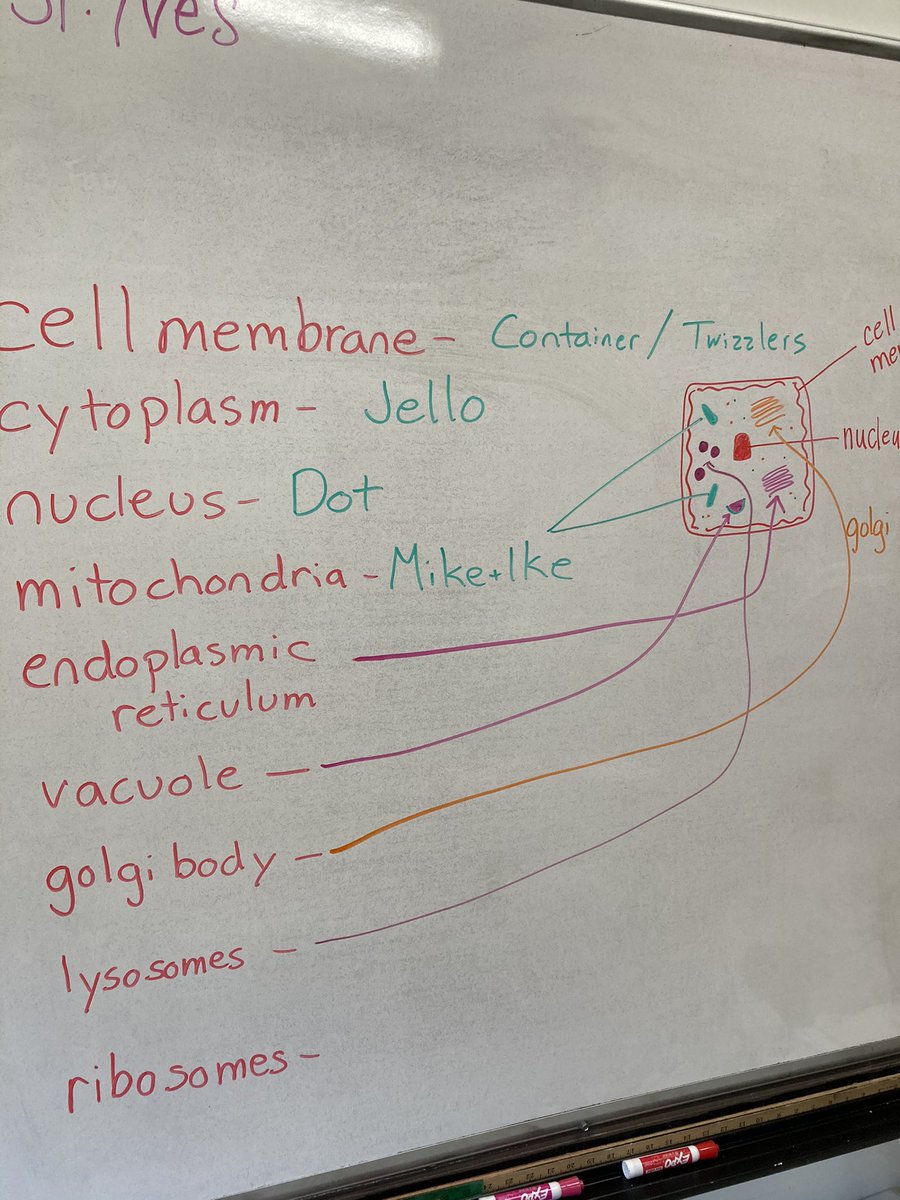 St. Ives
cell membrane - Container / Twizzlers
cytoplasm - Jello
nucleus - Dot
mitochondria - Mike+Ike
endoplasmic
reticulum
vacuole -
golgi body -
lysosomes -
ribosomes -
cell
nucleu
golgi
EXPO
EXPO